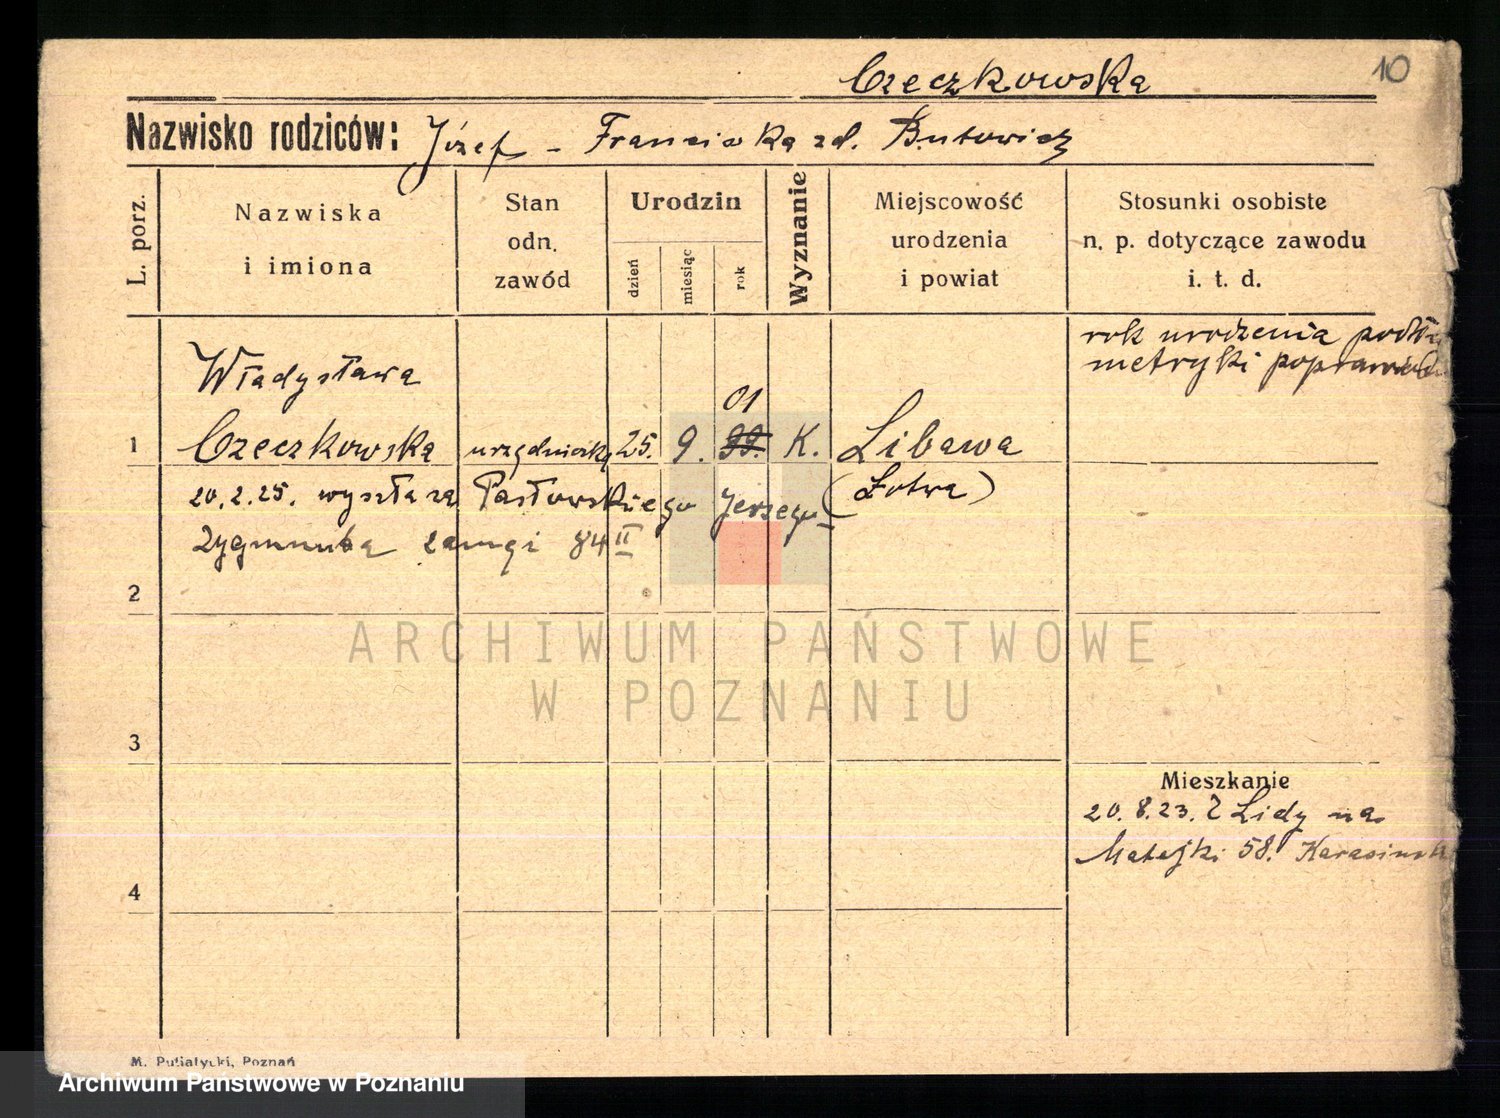 10
Czeczkowska
Nazwisko rodziców: Józef – Franciszka zd. Butowicz
L. porz.
Nazwiska
i imiona
Stan
odn.
zawód
Urodzin
dzień
miesiąc
rok
Wyznanie
Miejscowość
urodzenia
i powiat
Stosunki osobiste
n. p. dotyczące zawodu
i. t. d.
rok urodzenia podług
metryki
Władysława
01
1 Czeczkowska urzędniczka 25. 9. 99. K. Libawa
20.2.25. wyszła za Pastowskiego Jerzego (Łotwa)
Zygmunta 84 II
2
ARCHIWUM PAŃSTWOWE
W POZNANIU
3
Mieszkanie
20.8.23. Z Lidy na
Matejki 58.
4
M. Putiatycki, Poznań
Archiwum Państwowe w Poznaniu